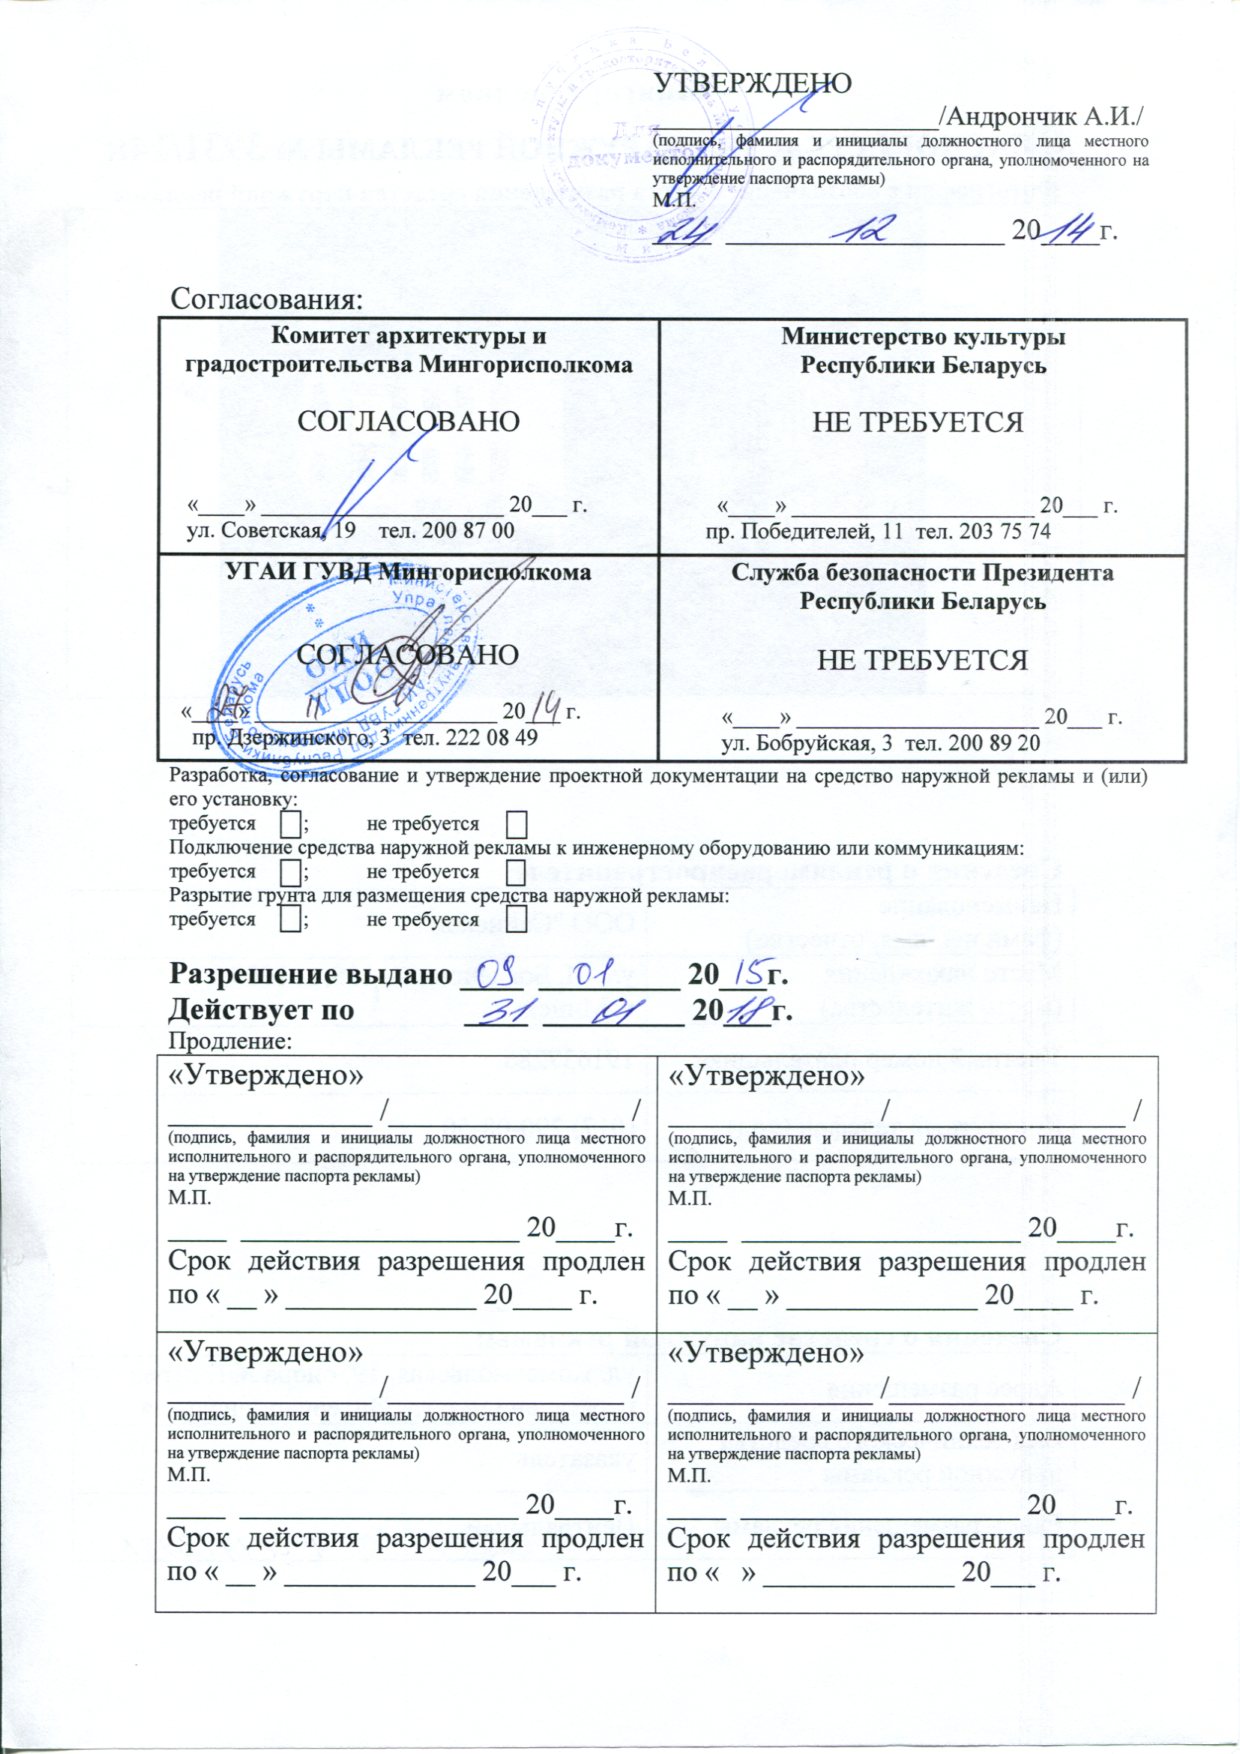 УТВЕРЖДЕНО
____________________/Андрончик А.И./
(подпись, фамилия и инициалы должностного лица местного
исполнительного и распорядительного органа, уполномоченного на
утверждение паспорта рекламы)
М.П.
Для
документов
24 12 2014г.
Согласования:
Комитет архитектуры и
градостроительства Мингорисполкома
СОГЛАСОВАНО
«____» ____________________ 20___ г.
ул. Советская, 19 тел. 200 87 00
Министерство культуры
Республики Беларусь
НЕ ТРЕБУЕТСЯ
«____» ____________________ 20___ г.
пр. Победителей, 11 тел. 203 75 74
УГАИ ГУВД Мингорисполкома
СОГЛАСОВАНО
«____» 11 2014 г.
пр. Дзержинского, 3 тел. 222 08 49
Служба безопасности Президента
Республики Беларусь
НЕ ТРЕБУЕТСЯ
«____» ____________________ 20___ г.
ул. Бобруйская, 3 тел. 200 89 20
Разработка, согласование и утверждение проектной документации на средство наружной рекламы и (или)
его установку:
требуется ; не требуется
Подключение средства наружной рекламы к инженерному оборудованию или коммуникациям:
требуется ; не требуется
Разрытие грунта для размещения средства наружной рекламы:
требуется ; не требуется
Разрешение выдано 09 01 2015г.
Действует по 31 01 2018г.
Продление:
«Утверждено»
______________ /________________ /
(подпись, фамилия и инициалы должностного лица местного
исполнительного и распорядительного органа, уполномоченного
на утверждение паспорта рекламы)
М.П.
____ ___________________ 20____г.
Срок действия разрешения продлен
по « __ » _____________ 20____ г.
«Утверждено»
______________ /________________ /
(подпись, фамилия и инициалы должностного лица местного
исполнительного и распорядительного органа, уполномоченного
на утверждение паспорта рекламы)
М.П.
____ ___________________ 20____г.
Срок действия разрешения продлен
по « __ » _____________ 20____ г.
«Утверждено»
______________ /________________ /
(подпись, фамилия и инициалы должностного лица местного
исполнительного и распорядительного органа, уполномоченного
на утверждение паспорта рекламы)
М.П.
____ ___________________ 20____г.
Срок действия разрешения продлен
по « __ » _____________ 20___ г.
«Утверждено»
______________ /________________ /
(подпись, фамилия и инициалы должностного лица местного
исполнительного и распорядительного органа, уполномоченного
на утверждение паспорта рекламы)
М.П.
____ ___________________ 20____г.
Срок действия разрешения продлен
по « » _____________ 20___ г.